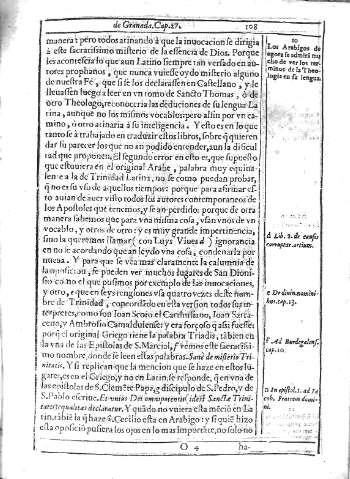 de Granada. Cap. 27. 108
manera: pero todos atinando à que la inuocacion se dirigia
à este sacratissimo misterio de la essencia de Dios. Porque
les acontescia lo que aun Latino siempre tan versado en au
tores prophanos, que nunca vuiesse oydo misterio alguno
de nuestra Fé, que si se los declarassen en Castellano, y le
lleuassen luego a leer en vn tomo de Sancto Thomas, ò de
otro Theologo, reconoceria las deduciones de su lengua La-
tina, aunque no los mismos vocablos: pero assi por en ca-
mino, ò otro atinaria à su inteligencia. Y esto es en lo que
tanto se à trabajado en traduzir estos libros, sobre que quieren
dar su parecer los que no an podido entender, aun la dificul
tad que proponen. El segundo error en esto es, que supuesto
que estuuiera en el original Arabe, palabra muy equiua-
lente a la de Trinidad Latina, no se como puedan probar,
que no es a vsada de aquellos tiempos: porque para afirmar es
to auian de auer visto todos los autores contemporaneos de
los Apostoles que tenemos, y se an perdido: porque de otra
manera sabemos que para vna misma cosa, vsan vnos de vn
vocablo, y otros de otro: y es muy grande impertinencia,
sino la queremos llamar (con Luys Viues d) ignorancia
en no se acordando que an leydo vna cosa, condenarla por
nueua. Y para que se vea mas claramente la calumnia de
la oposicion, se pueden ver muchos lugares de San Dioni-
sio como el que pusimos por exemplo de las innouaciones,
y otro, e que en seys renglones vsa quatro vezes deste nom
bre de Trinidad, concordado en esta version todos sus in-
terpretes, como son Ioan Scoto el Carthusiano, Ioan Sarra-
ceno, y Ambrosio Camaldulense: y era forçoso q̃ assi fuesse
porq̃ el original Griego tiene la palabra Triadis, tãbien en
la vna de las Epistolas de S. Marcial, f vemos este sacratissi-
mo nombre, donde se leen estas palabras. Sanè de misterio Tri-
nitatis. Y si replican que la mencion que se haze en estos lu-
gares, es en el Griego, y no en Latin, se responde, q̃ en vna de
las epistolas de S. Clemẽte Papa, g discipulo de S. Pedro, y de
S. Pablo escriue. Et vnius Dei omnipotentis idest Sanctæ Trini-
tatis æqualitas declaratur. Y quãdo no vuiera esta mẽció en La
tin, tãbiẽ la q̃ haze S. Cecilio esta en Arabigo: y si quiẽ hizo
esta oposiciõ pusiera los ojos en lo mas imporrẽte, no solo no
O 4 ha-
Los Arabigos de
agora se admirã mu
cho de ver los ter-
minos de la Theo-
logia en su lengua.
d Lib. 2. de causis
corruptar. artium.
e De diuin. nomini-
bus. cap. 13.
f Ad Burdegalens.
cap. 10.
g In epistol. 1. ad Ia
cob. Fratrem domi-
ni.